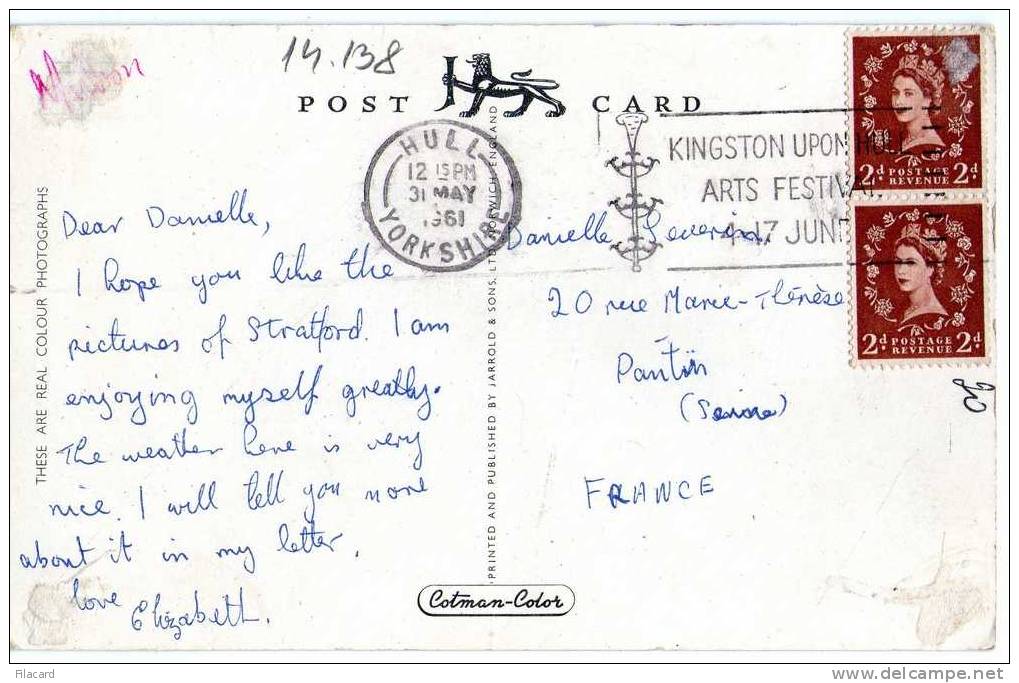 14.138
POST CARD
HULL
12 15 PM
31 MAY
1961
YORKSHIRE
KINGSTON UPON HULL
ARTS FESTIVAL
17 JUNE
2d POSTAGE REVENUE 2d
2d POSTAGE REVENUE 2d
THESE ARE REAL COLOUR PHOTOGRAPHS
Dear Danielle,
I hope you like the
pictures of Stratford. I am
enjoying myself greatly.
The weather here is very
nice. I will tell you more
about it in my letter.
love
Elizabeth.
PRINTED AND PUBLISHED BY JARROLD & SONS, LTD, NORWICH, ENGLAND
Danielle
20 rue Marie-Thérèse
Pantin
FRANCE
20
Cotman-Color
Filacard
www.delcampe.net